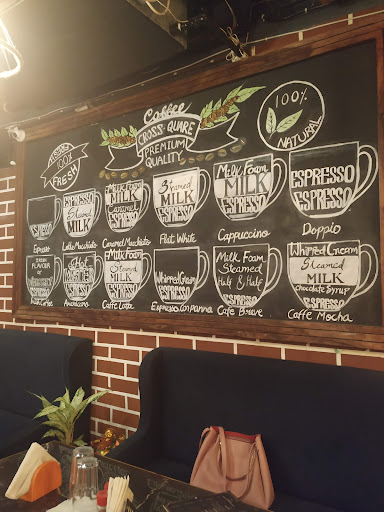 Coffee
CROSS SQUARE
PREMIUM
QUALITY
100%
FRESH
100%
NATURAL
ESPRESSO
Espresso
Steamed
MILK
ESPRESSO
Latte Macchiato
Milk Foam
MILK
Caramel
ESPRESSO
Caramel Macchiato
Steamed
MILK
ESPRESSO
Flat White
Milk Foam
MILK
ESPRESSO
Cappuccino
ESPRESSO
ESPRESSO
Doppio
FLAVOUR
OF
WHISKEY
ESPRESSO
Irish Coffee
Hot
WATER
ESPRESSO
Americano
Milk Foam
Steamed
MILK
ESPRESSO
Caffe Latte
Whipped Cream
ESPRESSO
Espresso Con panna
Milk Foam
Steamed
Half & Half
ESPRESSO
Cafe Breve
Whipped Cream
Steamed
MILK
Chocolate Syrup
ESPRESSO
Caffe Mocha